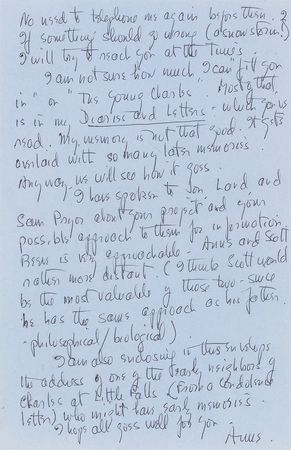 No need to telephone me again before then. 2
If something should go wrong (a snowstorm!)
I will try to reach you at the Times.
I am not sure how much I can "fill you
in" on "The young Charles". Most of that
is in my Diaries and Letters – which you've
read. My memory is not that good. It gets
overlaid with so many later memories.
Anyway – we will see how it goes.
I have spoken to Jon, Land, and
about your "project" and your
possible approach to them for information.
Reeve is very approachable – Anne and Scott
rather more distant. (I think Scott would
be the most valuable of those two – since
he has the same approach as his father.
– philosophical/biological)
I am also enclosing in this envelope
the address of one of the early neighbors of
Charles at Little Falls (from a condolence
letter) who might have early memories.
I hope all goes well for you –
Anne.